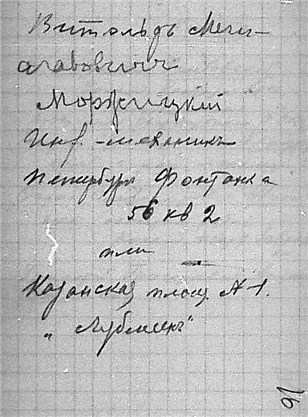 Витольдъ Мечи-
славовичъ
Моржицкій
Инж.-механикъ
Петербургъ Фонтанка
56 кв 2
или
Казанская площ. № 1.
16